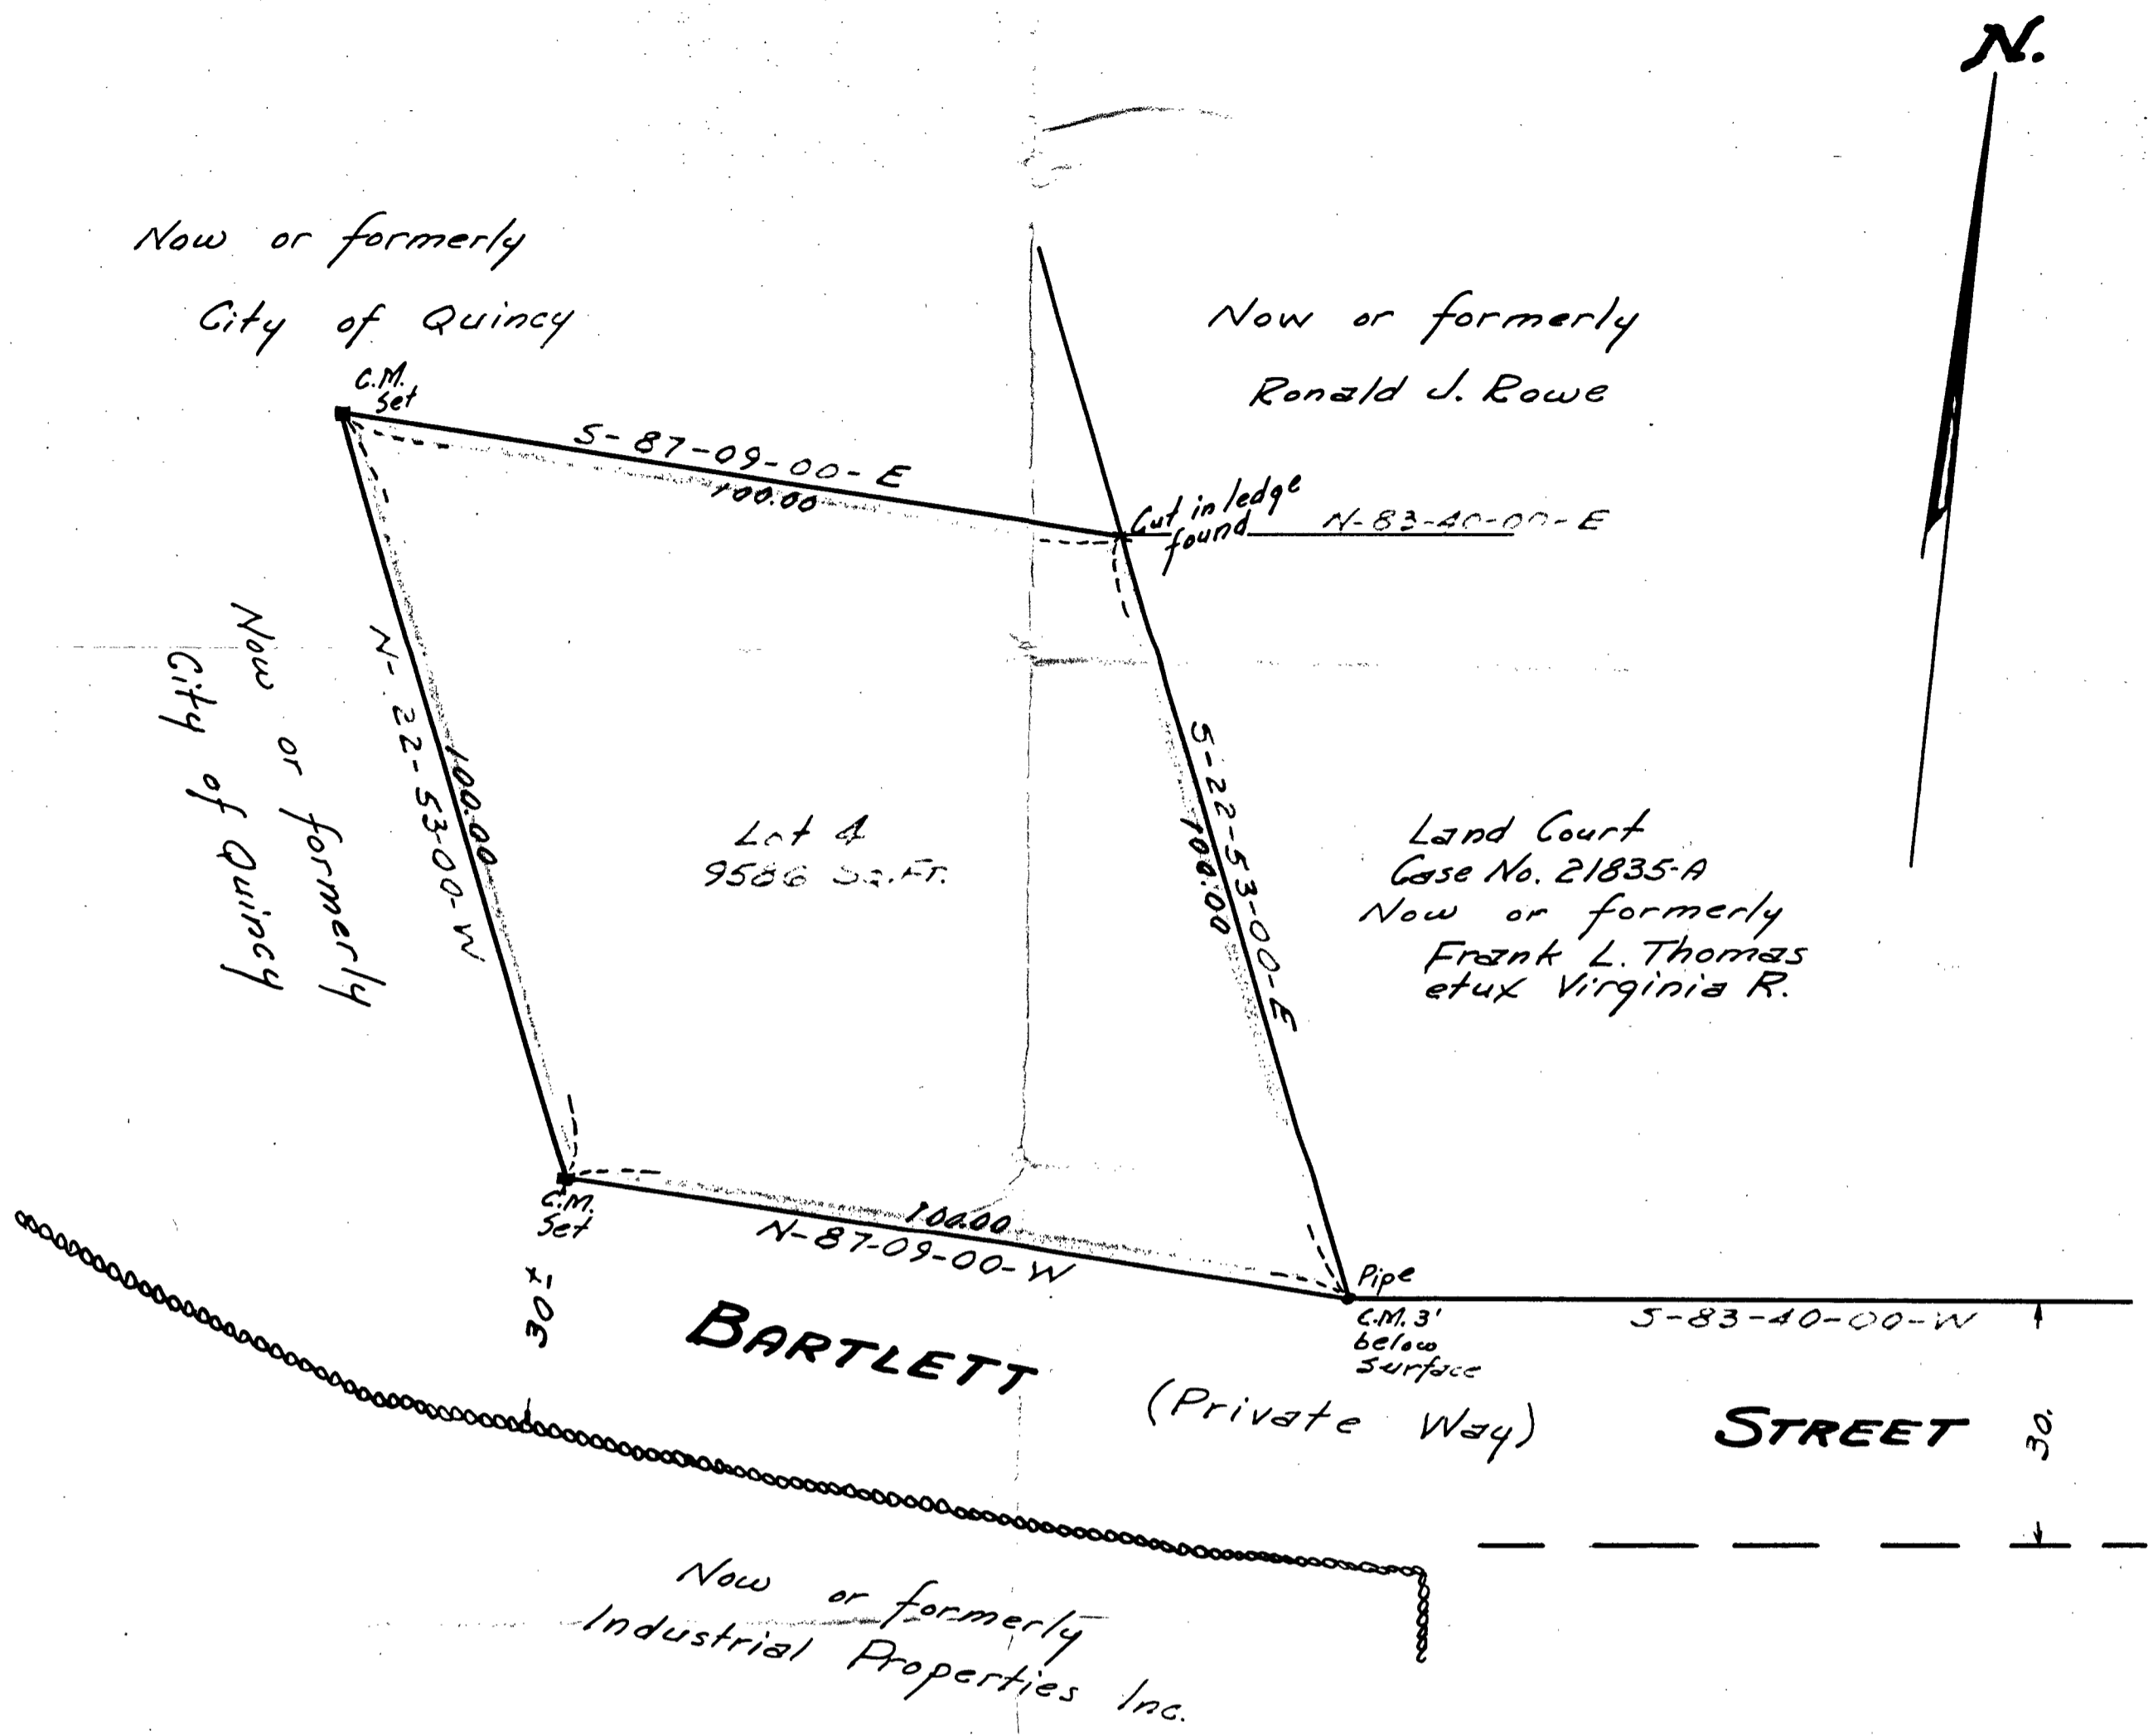 N.
Now or formerly
City of Quincy
Now or formerly
Ronald J. Rowe
C.M.
Set
S-87-09-00-E
100.00
Cut in ledge
found
N-83-40-00-E
Now or formerly
City of Quincy
N-22-53-00-W
100.00
Lot 4
9586 Sq.Ft.
S-22-53-00-E
100.00
Land Court
Case No. 21835-A
Now or formerly
Frank L. Thomas
etux Virginia R.
C.M.
Set
100.00
N-87-09-00-W
Pipe
C.M. 3'
below
surface
S-83-40-00-W
30±
BARTLETT
(Private Way)
STREET
30.
Now or formerly
Industrial Properties Inc.